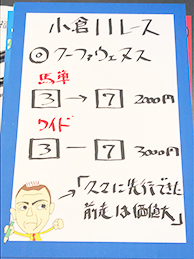 小倉11レース
◎フーファウェヌス
馬単
3→7 2000円
ワイド
3－7 3000円
→「久々に先行できた
前走は価値大」